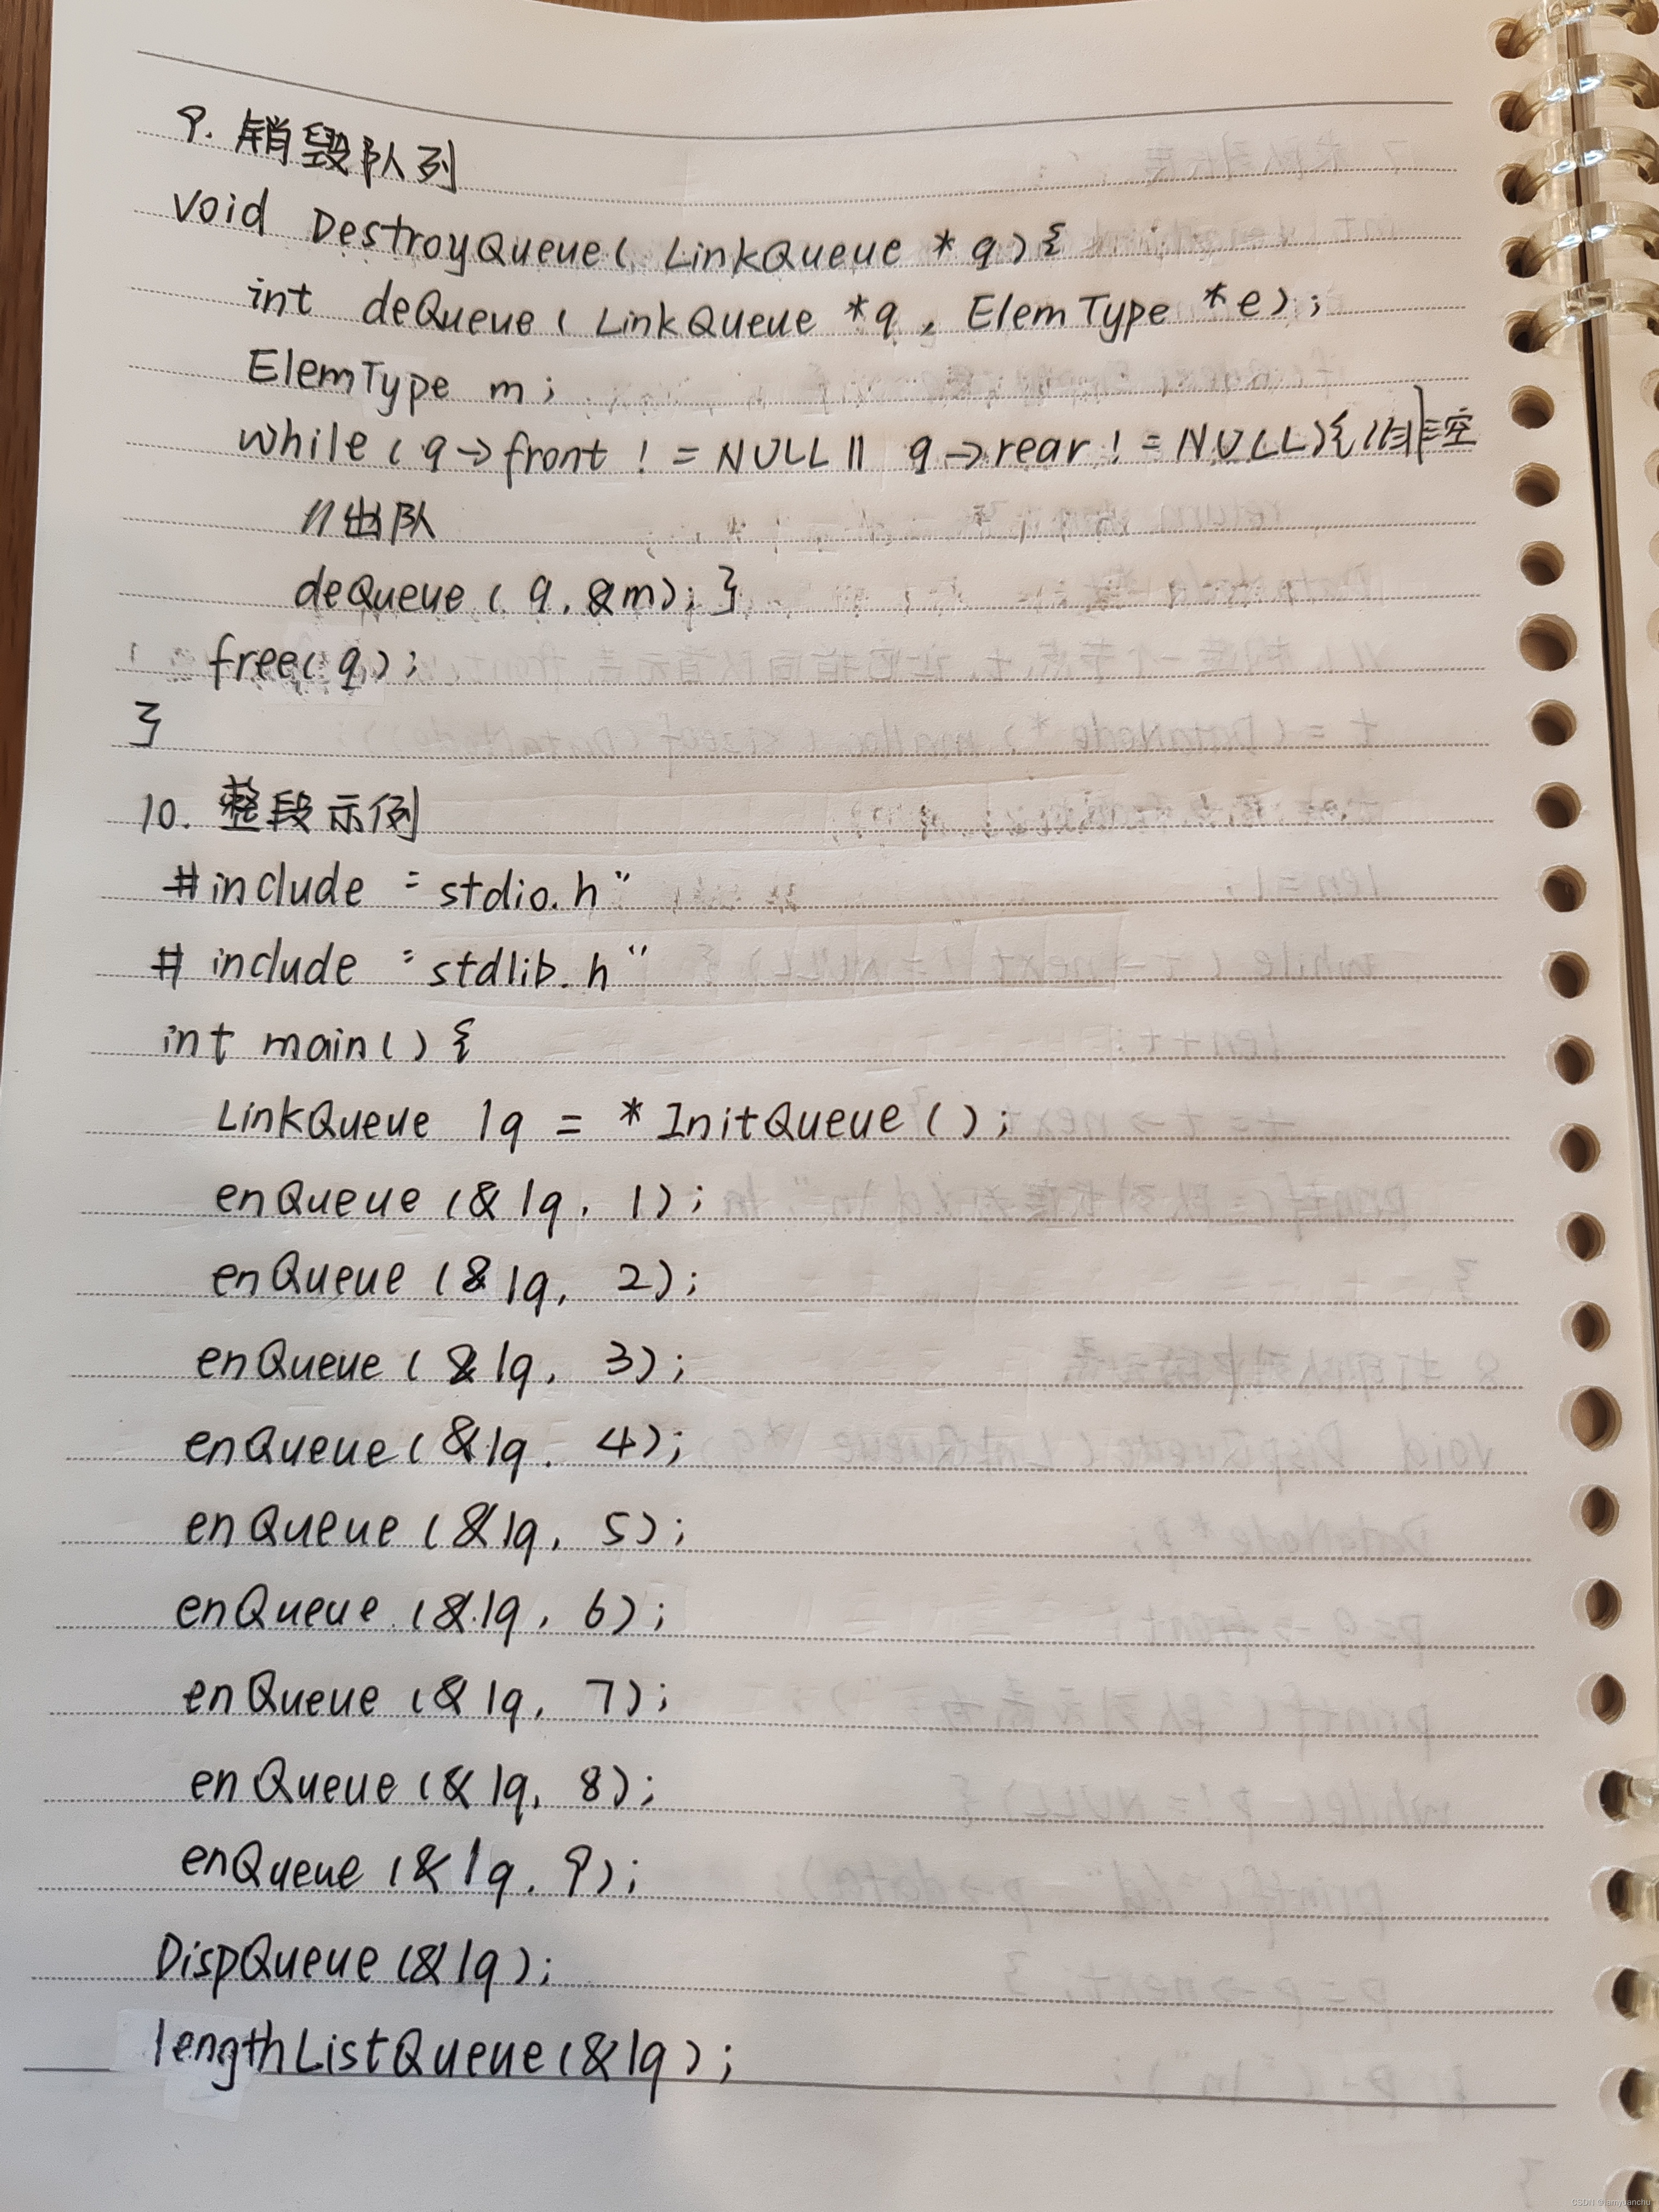 9. 销毁队列
void DestroyQueue( LinkQueue * q){
int deQueue( LinkQueue *q, ElemType *e);
ElemType m;
while(q->front != NULL || q->rear != NULL){ //非空
//出队
deQueue( q, &m); }
free(q);
}
10. 整段示例
#include "stdio.h"
# include "stdlib.h"
int main() {
LinkQueue lq = * InitQueue();
enQueue (&lq, 1);
enQueue (&lq, 2);
enQueue (&lq, 3);
enQueue (&lq, 4);
enQueue (&lq, 5);
enQueue (&lq, 6);
enQueue (&lq, 7);
enQueue (&lq, 8);
enQueue (&lq, 9);
DispQueue(&lq);
lengthListQueue(&lq);